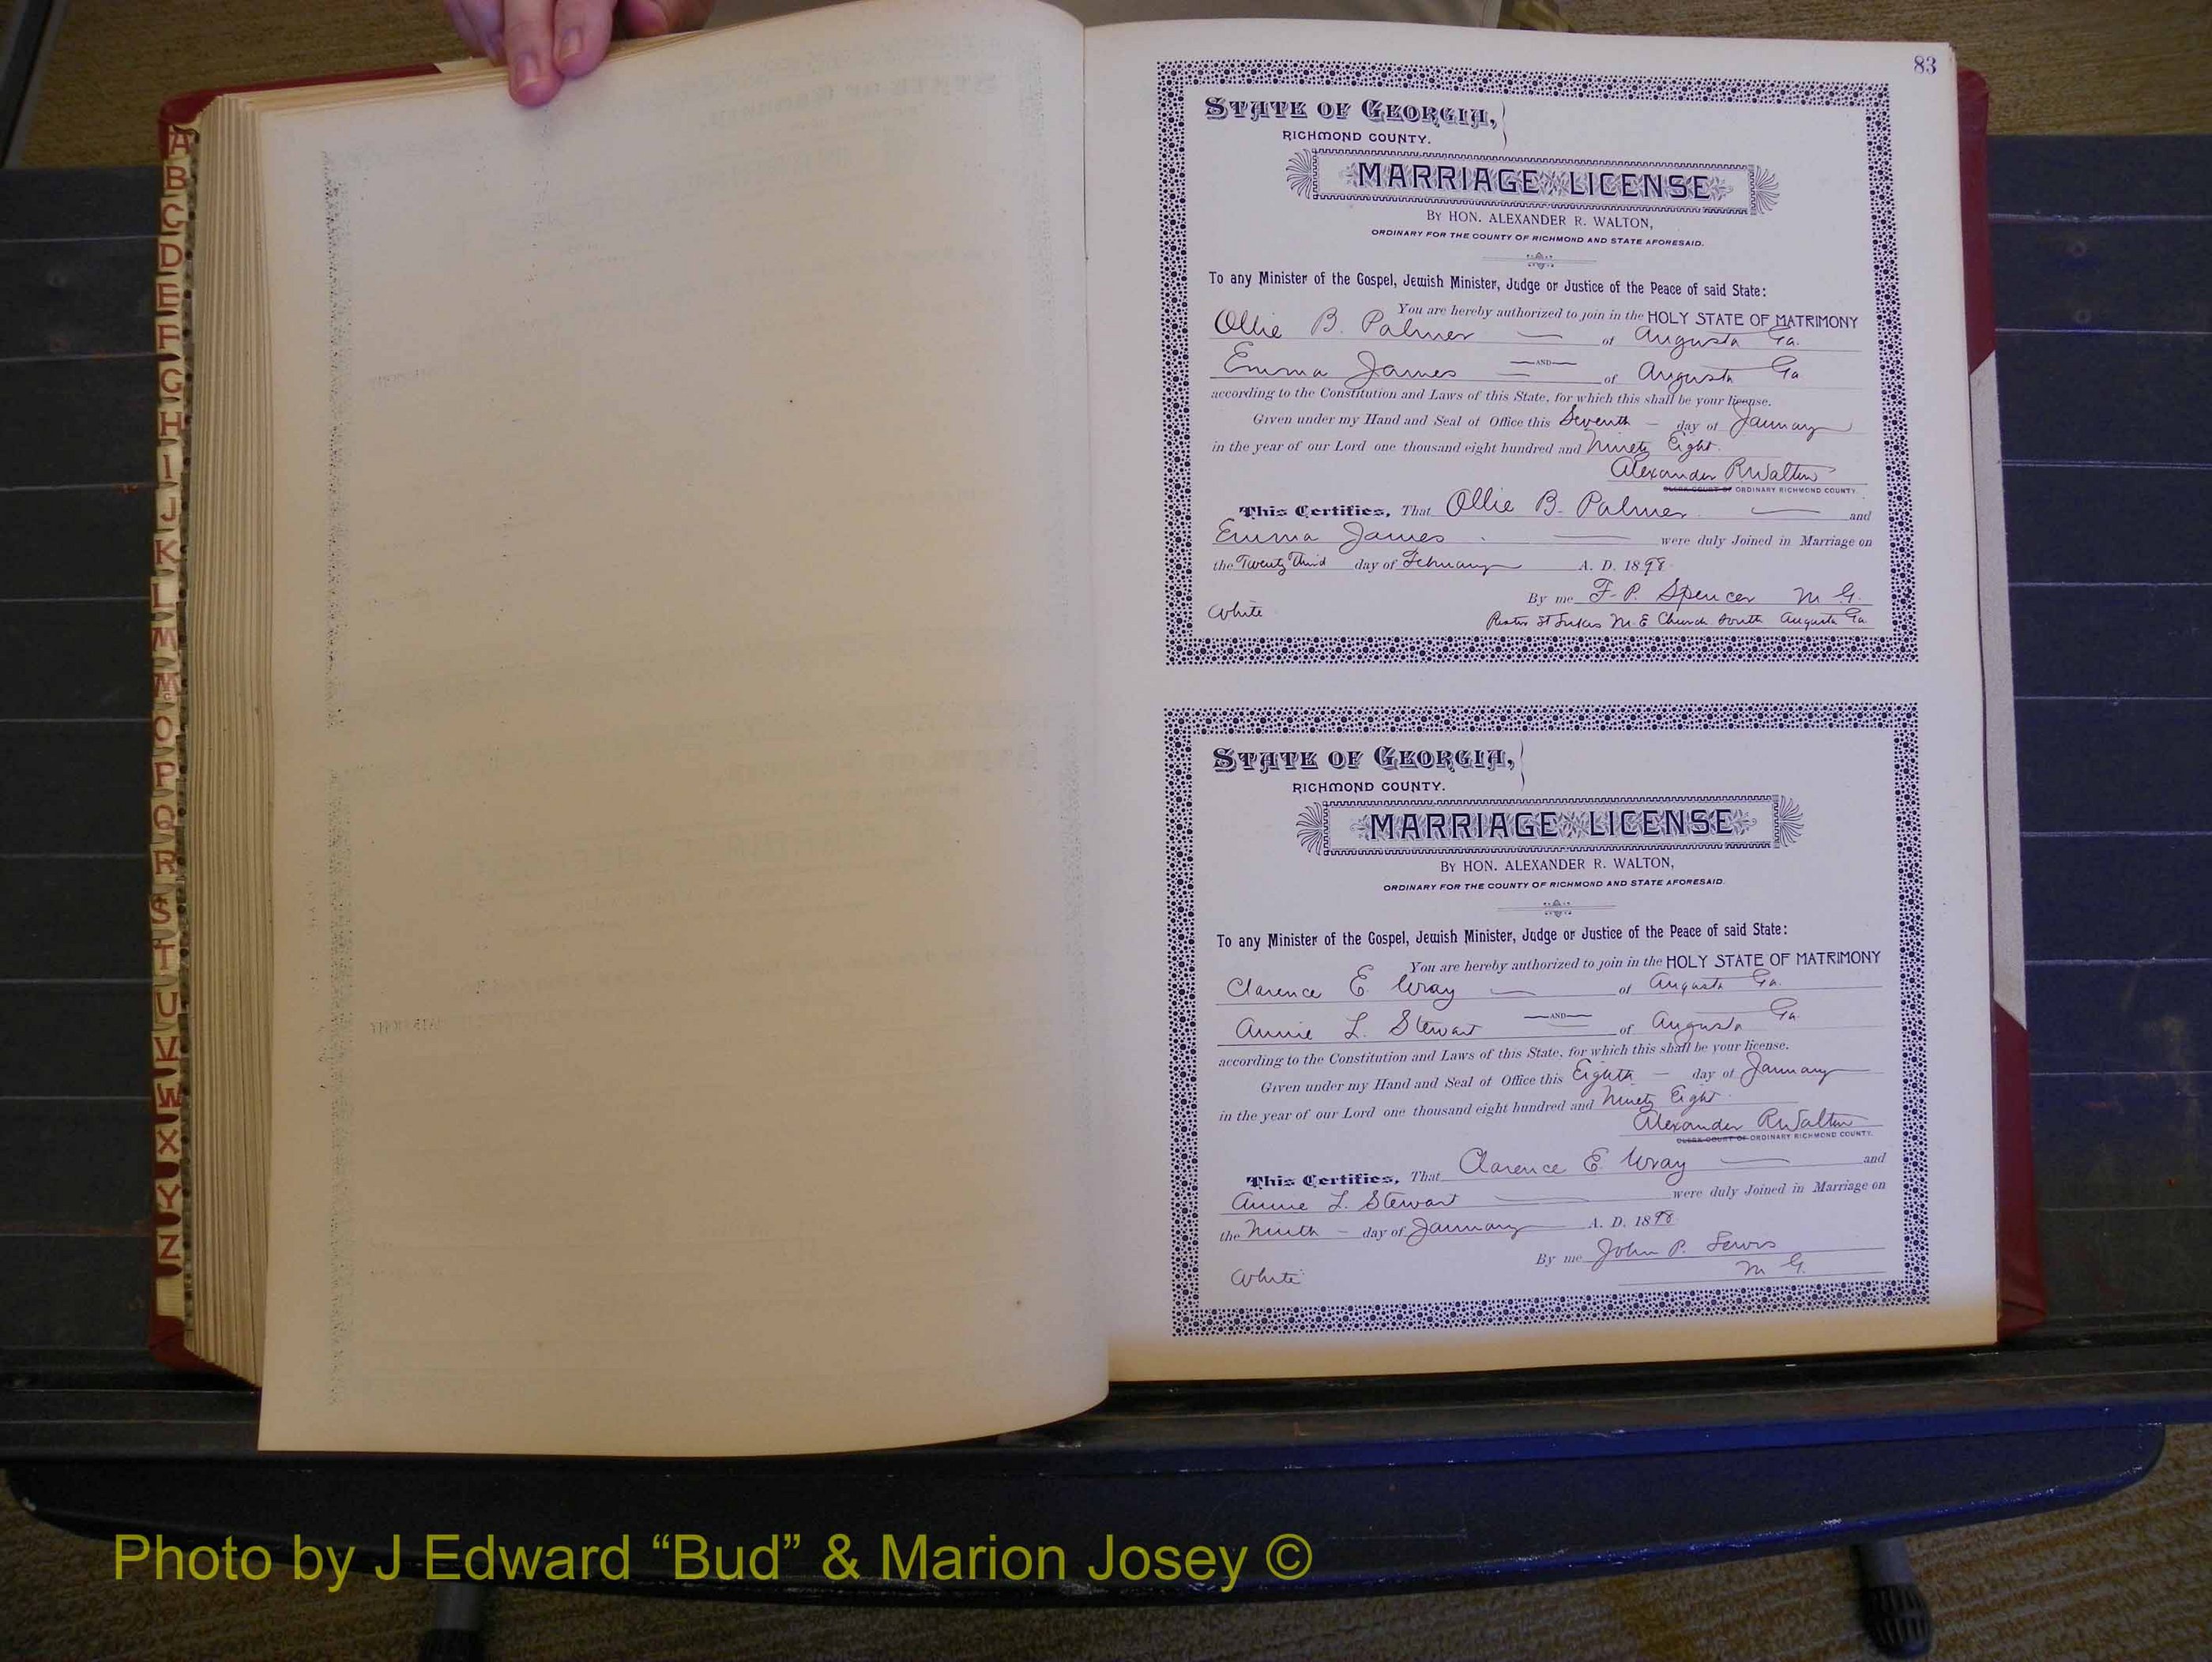 83
A
B
C
D
E
F
G
H
I
J
K
L
M
Mc
O
P
Q
R
S
T
U
V
W
X
Y
Z
STATE OF GEORGIA,
RICHMOND COUNTY.
MARRIAGE LICENSE
BY HON. ALEXANDER R. WALTON,
ORDINARY FOR THE COUNTY OF RICHMOND AND STATE AFORESAID.
To any Minister of the Gospel, Jewish Minister, Judge or Justice of the Peace of said State:
You are hereby authorized to join in the HOLY STATE OF MATRIMONY
Ollie B. Palmer — of Augusta Ga.
—AND—
Emma James of Augusta Ga
according to the Constitution and Laws of this State, for which this shall be your license.
Given under my Hand and Seal of Office this Seventh — day of January
in the year of our Lord one thousand eight hundred and Ninety Eight.
Alexander R Walton
CLERK COURT OF ORDINARY RICHMOND COUNTY.
This Certifies, That Ollie B. Palmer — and
Emma James — were duly Joined in Marriage on
the Twenty Third day of February A. D. 1898
By me F. P. Spencer M G.
White
St Lukes M. E Church South Augusta Ga
STATE OF GEORGIA,
RICHMOND COUNTY.
MARRIAGE LICENSE
BY HON. ALEXANDER R. WALTON,
ORDINARY FOR THE COUNTY OF RICHMOND AND STATE AFORESAID.
To any Minister of the Gospel, Jewish Minister, Judge or Justice of the Peace of said State:
You are hereby authorized to join in the HOLY STATE OF MATRIMONY
Clarence E. Wray — of Augusta Ga.
—AND—
Annie L. Stewart of Augusta Ga.
according to the Constitution and Laws of this State, for which this shall be your license.
Given under my Hand and Seal of Office this Eighth — day of January
in the year of our Lord one thousand eight hundred and Ninety Eight.
Alexander R Walton
CLERK COURT OF ORDINARY RICHMOND COUNTY.
This Certifies, That Clarence E. Wray — and
Annie L. Stewart — were duly Joined in Marriage on
the Ninth — day of January A. D. 1898
By me John P. Lewis
White
M G.
Photo by J Edward “Bud” & Marion Josey ©